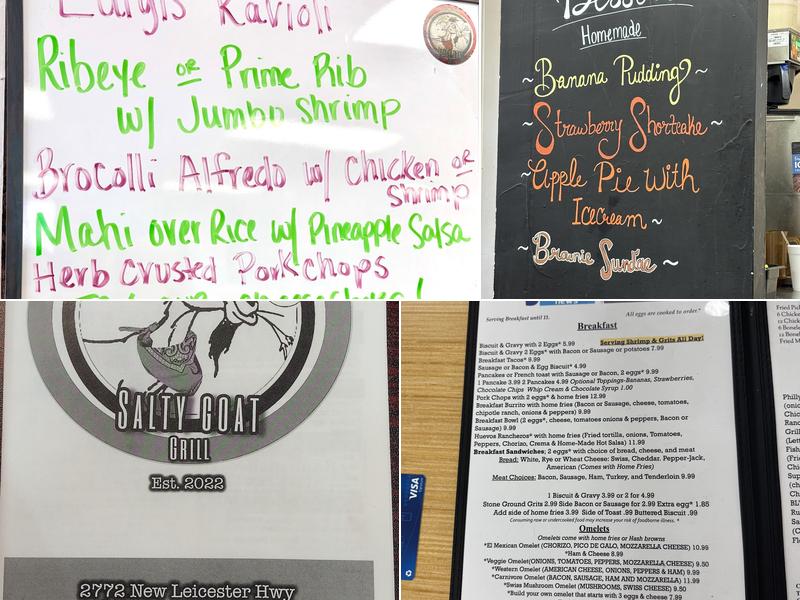 Luigis Ravioli
Ribeye or Prime Rib
w/ Jumbo Shrimp
Brocolli Alfredo w/ Chicken or
Shrimp
Mahi over Rice w/ Pineapple Salsa
Herb Crusted Porkchops
Homemade
~Banana Pudding~
~Strawberry Shortcake~
~Apple Pie With
Icecream~
~Brownie Sundae~
SALTY GOAT
GRILL
Est. 2022
2772 New Leicester Hwy
VISA
Serving Breakfast until 11.
All eggs are cooked to order.*
Breakfast
Serving Shrimp & Grits All Day!
Biscuit & Gravy with 2 Eggs* 5.99
Biscuit & Gravy 2 Eggs* with Bacon or Sausage or potatoes 7.99
Breakfast Tacos* 9.99
Sausage or Bacon & Egg Biscuit* 4.99
Pancakes or French toast with Sausage or Bacon, 2 eggs* 9.99
1 Pancake 3.99 2 Pancakes 4.99 Optional Toppings-Bananas, Strawberries,
Chocolate Chips Whip Cream & Chocolate Syrup 1.00
Pork Chops with 2 eggs* & home fries 12.99
Breakfast Burrito with home fries (Bacon or Sausage, cheese, tomatoes,
chipotle ranch, onions & peppers) 9.99
Breakfast Bowl (2 eggs*, cheese, tomatoes onions & peppers, Bacon or
Sausage) 9.99
Huevos Rancheros* with home fries (Fried tortilla, onions, Tomatoes,
Peppers, Chorizo, Crema & Home-Made Hot Salsa) 11.99
Breakfast Sandwiches; 2 eggs* with choice of bread, cheese, and meat
Bread: White, Rye or Wheat Cheese: Swiss, Cheddar. Pepper-Jack,
American (Comes with Home Fries)
Meat Choices: Bacon, Sausage, Ham, Turkey, and Tenderloin 9.99
1 Biscuit & Gravy 3.99 or 2 for 4.99
Stone Ground Grits 2.99 Side Bacon or Sausage for 2.99 Extra egg* 1.85
Add side of home fries 3.99 Side of Toast .99 Buttered Biscuit .99
Consuming raw or undercooked food may increase your risk of foodborne illness. *
Omelets
Omelets come with home fries or Hash browns
*El Mexican Omelet (CHORIZO, PICO DE GALO, MOZZARELLA CHEESE) 10.99
*Ham & Cheese 8.99
*Veggie Omelet(ONIONS, TOMATOES, PEPPERS, MOZZARELLA CHEESE) 9.50
*Western Omelet (AMERICAN CHEESE, ONIONS, PEPPERS & HAM) 9.99
*Carnivore Omelet (BACON, SAUSAGE, HAM AND MOZZARELLA) 11.99
*Swiss Mushroom Omelet (MUSHROOMS, SWISS CHEESE) 9.50
*Build your own omelet that starts with 3 eggs & cheese 7.99